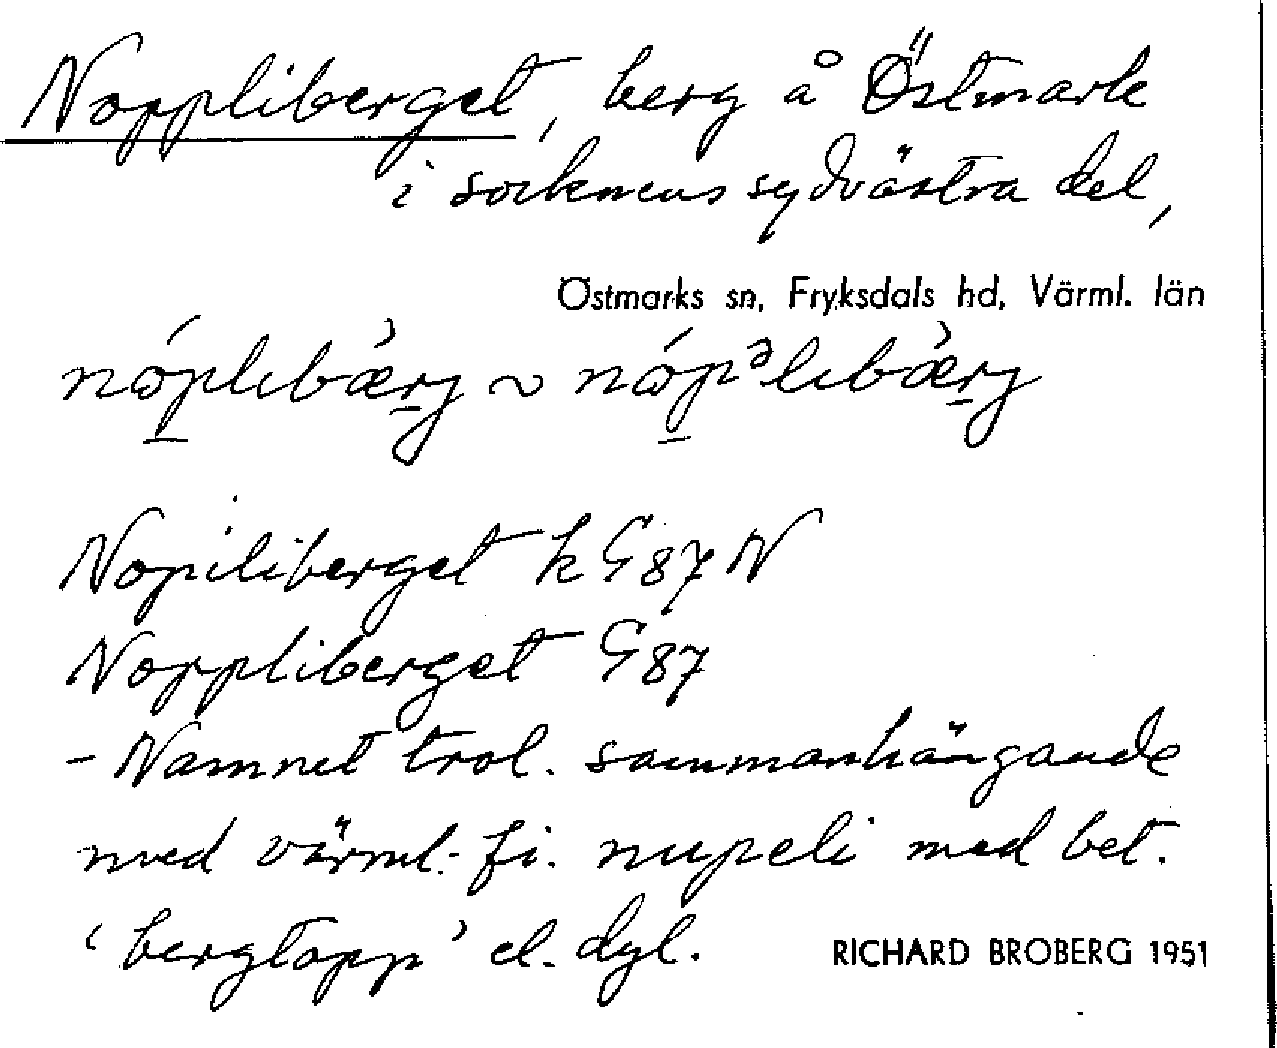 Noppliberget, berg å Östmark
i socknens sydvästra del,
Östmarks sn, Fryksdals hd, Värml. län
nópli̇bæ̀rj ~ nópᵊlibæ̀rj
Nopiliberget k G 87 N
Noppliberget G 87
- Namnet trol. sammanhängande
med värml.-fi. nupeli med bet.
'bergtopp' el. dyl.
RICHARD BROBERG 1951